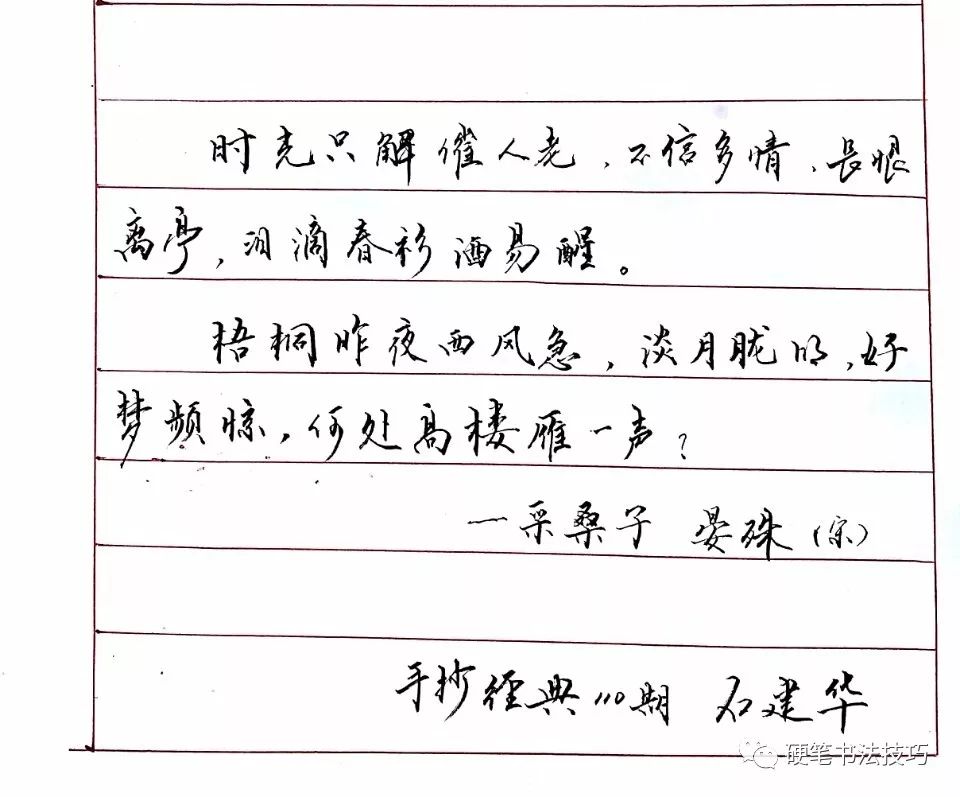 时光只解催人老，不信多情，長恨
离亭，泪滴春衫酒易醒。
梧桐昨夜西风急，淡月胧明，好
梦频惊，何处高楼雁一声？
一采桑子 晏殊（宋）
手抄经典110期 石建华
硬笔书法技巧